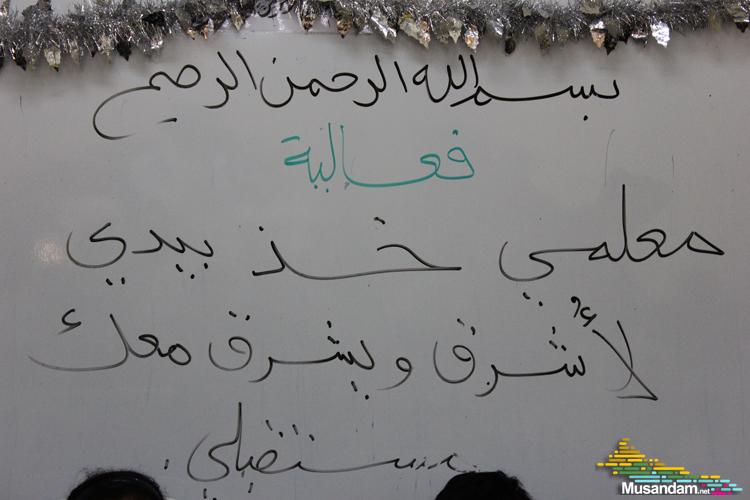 بسم الله الرحمن الرحيم
فعالية
معلمي خذ بيدي
لأشرق ويشرق معك
مستقبلي.
Musandam.net